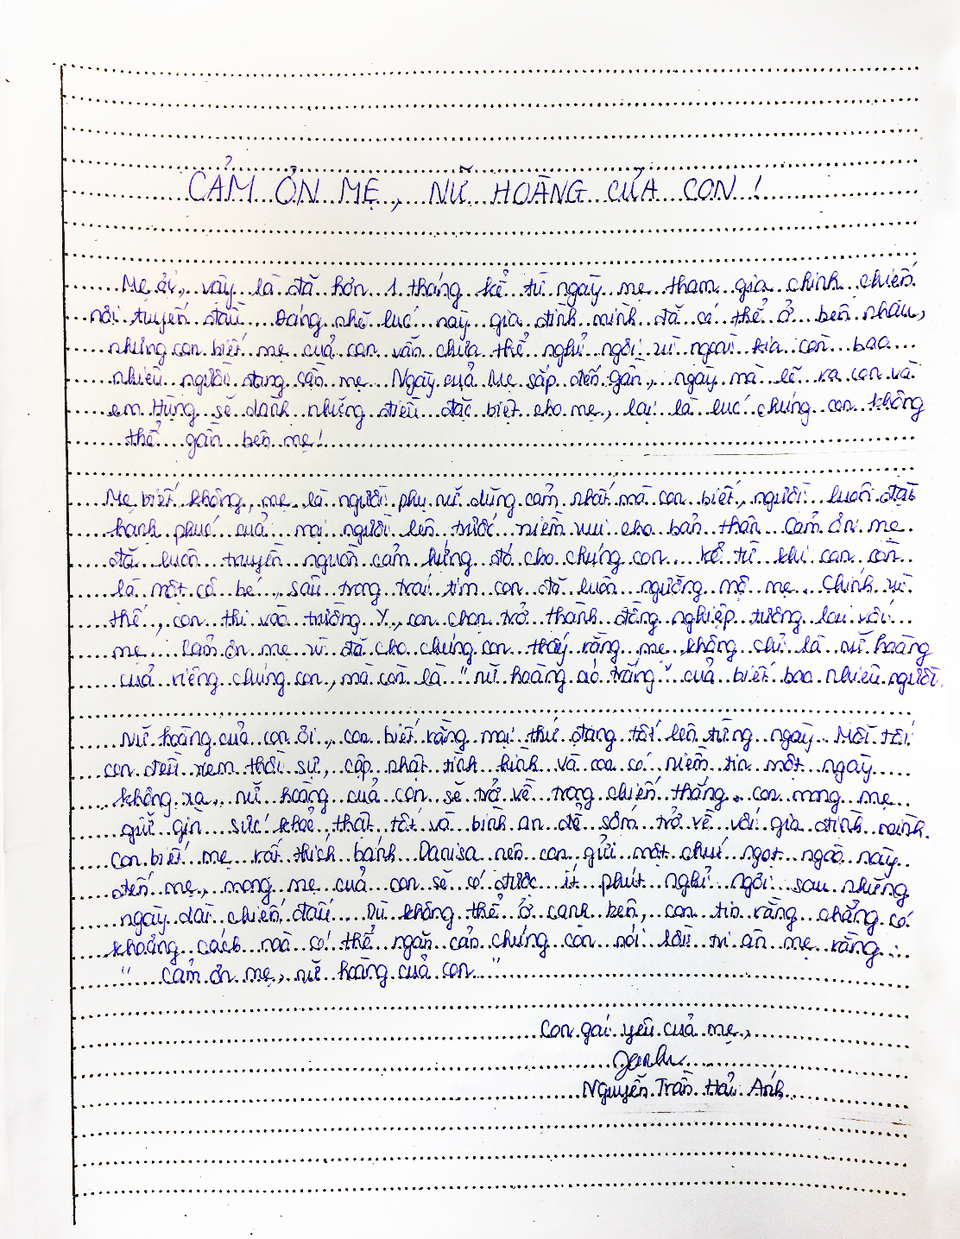 CẢM ƠN MẸ, NỮ HOÀNG CỦA CON!
Mẹ ơi, vậy là đã hơn 1 tháng kể từ ngày mẹ tham gia chinh chiến
nơi tuyến đầu. Đáng nhẽ lúc này gia đình mình đã có thể ở bên nhau,
nhưng con biết mẹ của con vẫn chưa thể nghỉ ngơi vì ngoài kia còn bao
nhiêu người đang cần mẹ. Ngày của Mẹ sắp đến gần, ngày mà lẽ ra con và
em Hùng sẽ dành những điều đặc biệt cho mẹ, lại là lúc chúng con không
thể gần bên mẹ!
Mẹ biết không, mẹ là người phụ nữ dũng cảm nhất mà con biết, người luôn đặt
hạnh phúc của mọi người lên trước niềm vui cho bản thân. Cảm ơn mẹ
đã luôn truyền nguồn cảm hứng đó cho chúng con. Kể từ khi con còn
là một cô bé, sâu trong trái tim con đã luôn ngưỡng mộ mẹ. Chính vì
thế, con thi vào trường Y, con chọn trở thành đồng nghiệp tương lai với
mẹ. Cảm ơn mẹ vì đã cho chúng con thấy rằng mẹ không chỉ là nữ hoàng
của riêng chúng con, mà còn là "nữ hoàng áo trắng" của biết bao nhiêu người.
Nữ hoàng của con ơi, con biết rằng mọi thứ đang tốt lên từng ngày. Mỗi tối
con đều xem thời sự, cập nhật tình hình và con có niềm tin một ngày
không xa, nữ hoàng của con sẽ trở về trong chiến thắng. Con mong mẹ
giữ gìn sức khoẻ thật tốt và bình an để sớm trở về với gia đình mình.
Con biết mẹ rất thích bánh Danisa nên con gửi một chút ngọt ngào này
đến mẹ, mong mẹ của con sẽ có được ít phút nghỉ ngơi sau những
ngày dài chiến đấu. Dù không thể ở cạnh bên, con tin rằng chẳng có
khoảng cách nào có thể ngăn cản chúng con nói lời tri ân mẹ rằng:
"Cảm ơn mẹ, nữ hoàng của con"
Con gái yêu của mẹ,
Nguyễn Trần Hải Anh